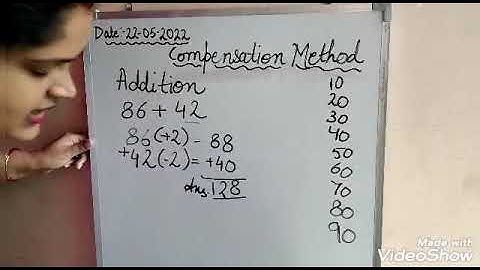 Date:-22-05-2022
Compensation Method
Addition
86 + 42
86(+2) - 88
+42(-2) = +40
Ans. 128
10
20
30
40
50
60
70
80
90
Made with
VideoShow